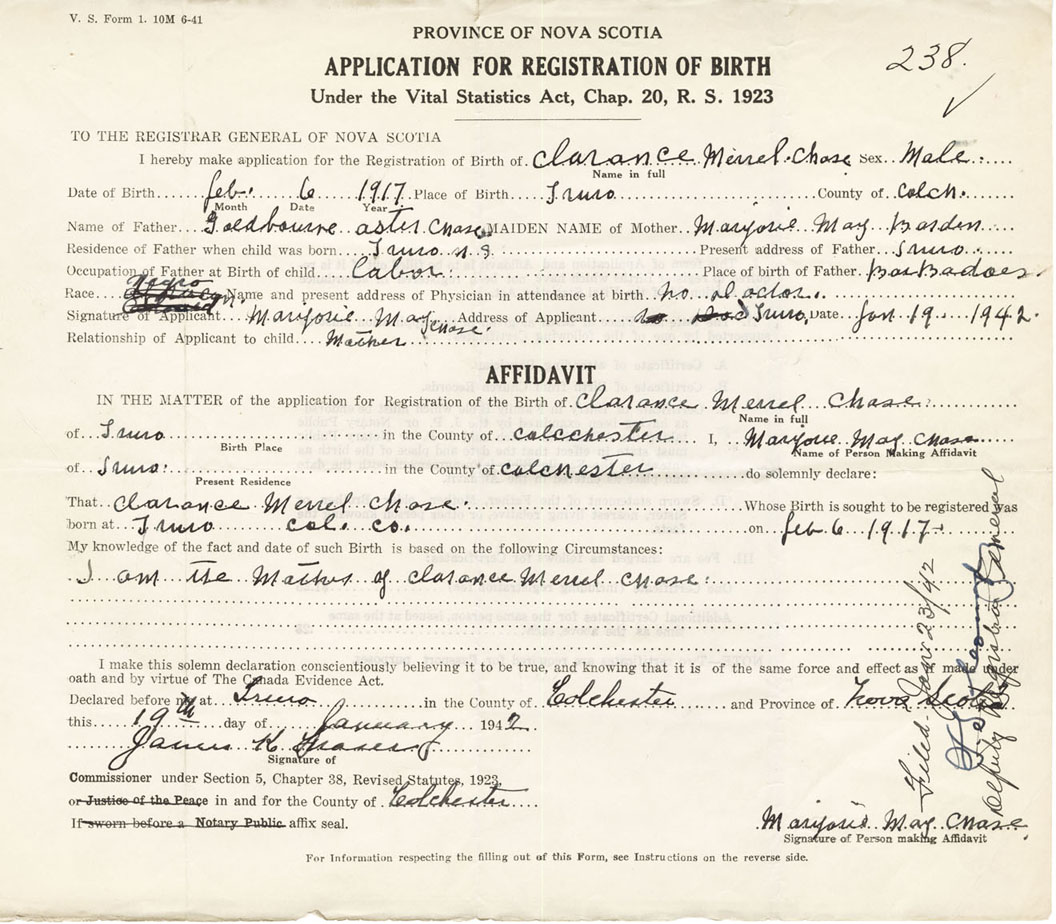 V. S. Form 1. 10M 6-41
PROVINCE OF NOVA SCOTIA
238.
APPLICATION FOR REGISTRATION OF BIRTH
Under the Vital Statistics Act, Chap. 20, R. S. 1923
TO THE REGISTRAR GENERAL OF NOVA SCOTIA
I hereby make application for the Registration of Birth of Clarance Merrel Chase Sex Male
Name in full
Date of Birth feb. 6 1917 Place of Birth Truro County of Colch.
Month Date Year
Name of Father Goldbourne aster Chase MAIDEN NAME of Mother Marjorie May Barden
Residence of Father when child was born Truro n.s. Present address of Father Truro.
Occupation of Father at Birth of child Labor Place of birth of Father BarBadoes.
Race Negro Name and present address of Physician in attendance at birth no Doctor
Signature of Applicant Marjorie May Chase. Address of Applicant Truro, Date Jan 19 1942.
Relationship of Applicant to child Mother
AFFIDAVIT
IN THE MATTER of the application for Registration of the Birth of Clarance Merrel Chase
Name in full
of Truro in the County of Colchester I, Marjorie May Chase
Birth Place Name of Person Making Affidavit
of Truro in the County of Colchester do solemnly declare:
Present Residence
That Clarance Merrel Chase Whose Birth is sought to be registered was
born at Truro Col. Co. on feb 6 1917
My knowledge of the fact and date of such Birth is based on the following Circumstances:
I am the Mother of Clarance Merrel Chase
I make this solemn declaration conscientiously believing it to be true, and knowing that it is of the same force and effect as if made under
oath and by virtue of The Canada Evidence Act.
Declared before me at Truro in the County of Colchester and Province of Nova Scotia
this 19th day of January 1942
James K.
Signature of
Commissioner under Section 5, Chapter 38, Revised Statutes, 1923,
or Justice of the Peace in and for the County of Colchester
If sworn before a Notary Public affix seal.
Marjorie May Chase.
Signature of Person making Affidavit
For Information respecting the filling out of this Form, see Instructions on the reverse side.
Filed Jan 23/42
Deputy Registrar General